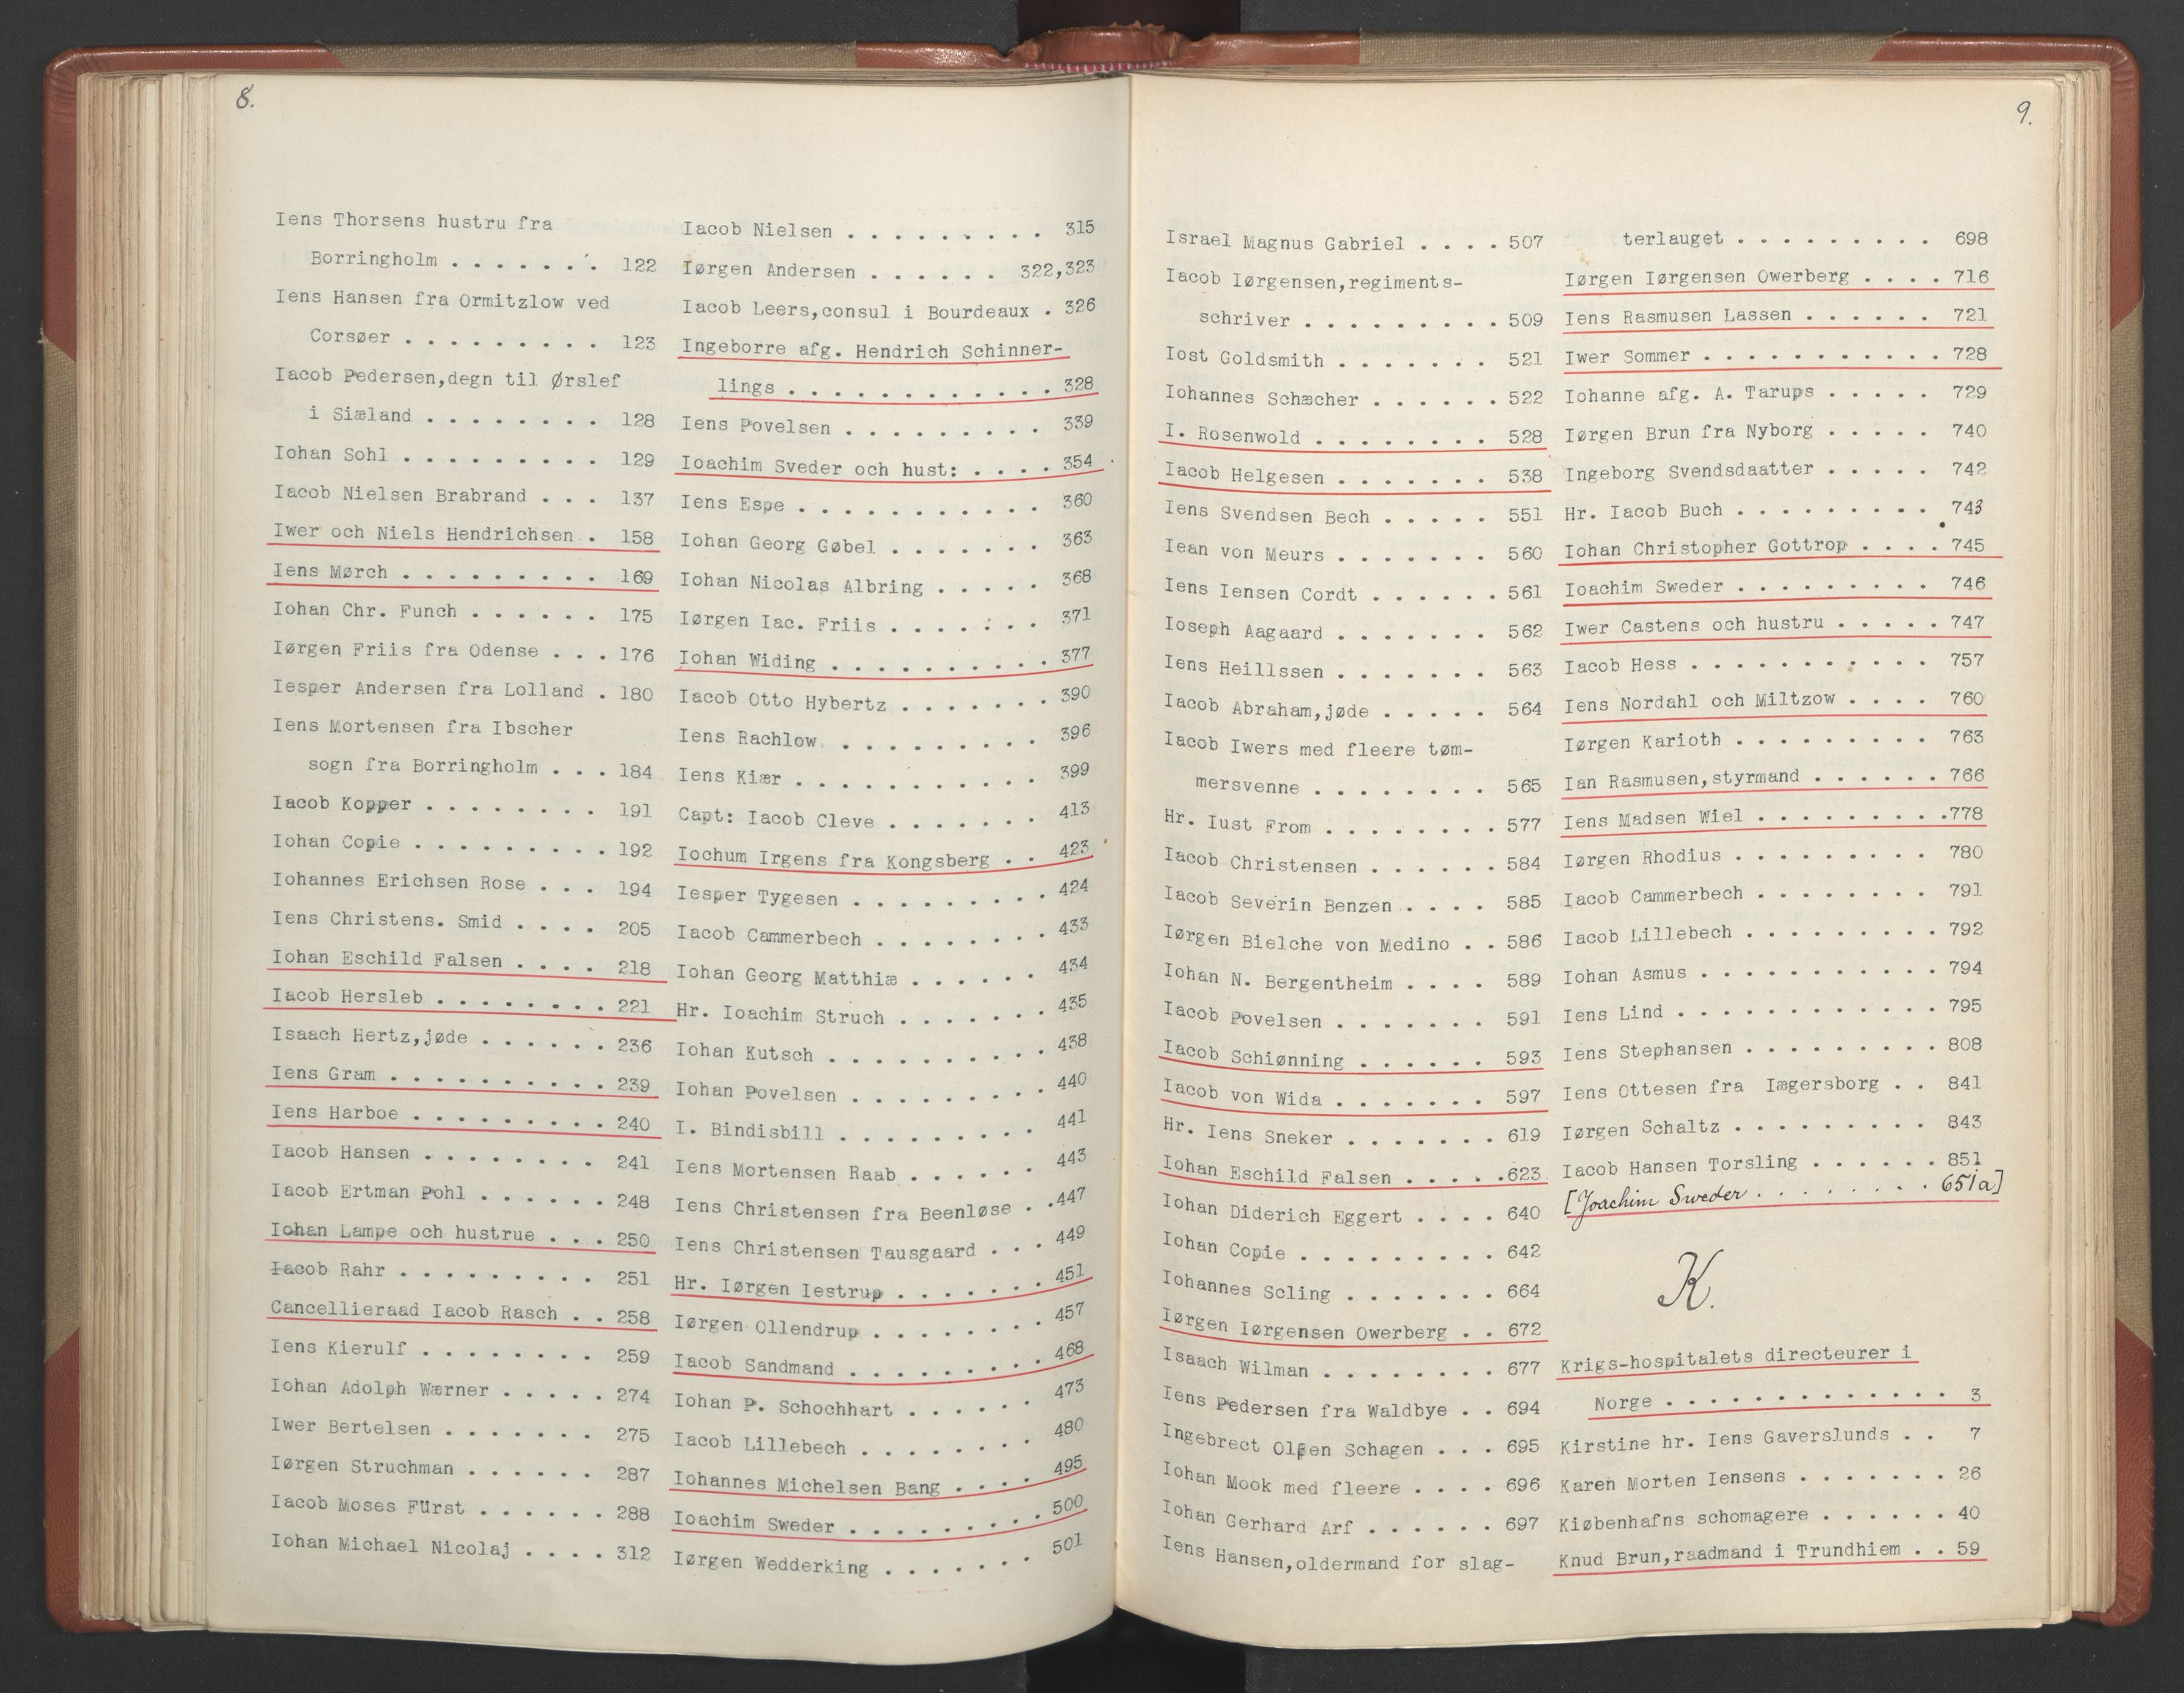 8.
Iens Thorsens hustru fra
Borringholm . . . . . . . 122
Iens Hansen fra Ormitzlow ved
Corsøer . . . . . . . . . 123
Iacob Pedersen,degn til Ørslef
i Siæland . . . . . . . . 128
Iohan Sohl . . . . . . . . . 129
Iacob Nielsen Brabrand . . . 137
Iwer och Niels Hendrichsen . 158
Iens Mørch . . . . . . . . . 169
Iohan Chr. Funch . . . . . . 175
Iørgen Friis fra Odense . . . 176
Iesper Andersen fra Lolland . 180
Iens Mortensen fra Ibscher
sogn fra Borringholm . . . 184
Iacob Kopper . . . . . . . . 191
Iohan Copie . . . . . . . . . 192
Iohannes Erichsen Rose . . . 194
Iens Christens. Smid . . . . 205
Iohan Eschild Falsen . . . . 218
Iacob Hersleb . . . . . . . . 221
Isaach Hertz,jøde . . . . . . 236
Iens Gram . . . . . . . . . . 239
Iens Harboe . . . . . . . . . 240
Iacob Hansen . . . . . . . . 241
Iacob Ertman Pohl . . . . . . 248
Iohan Lampe och hustrue . . . 250
Iacob Rahr . . . . . . . . . 251
Cancellieraad Iacob Rasch . . 258
Iens Kierulf . . . . . . . . 259
Iohan Adolph Wærner . . . . . 274
Iwer Bertelsen . . . . . . . 275
Iørgen Struchman . . . . . . 287
Iacob Moses Fürst . . . . . . 288
Iohan Michael Nicolaj . . . . 312
Iacob Nielsen . . . . . . . . . 315
Iørgen Andersen . . . . . . 322,323
Iacob Leers,consul i Bourdeaux . 326
Ingeborre afg. Hendrich Schinner-
lings . . . . . . . . . . . . 328
Iens Povelsen . . . . . . . . . 339
Ioachim Sveder och hust: . . . . 354
Iens Espe . . . . . . . . . . . 360
Iohan Georg Gøbel . . . . . . . 363
Iohan Nicolas Albring . . . . . 368
Iørgen Iac. Friis . . . . . . . 371
Iohan Widing . . . . . . . . . . 377
Iacob Otto Hybertz . . . . . . . 390
Iens Rachlow. . . . . . . . . . 396
Iens Kiær . . . . . . . . . . . 399
Capt: Iacob Cleve . . . . . . . 413
Iochum Irgens fra Kongsberg . . 423
Iesper Tygesen . . . . . . . . . 424
Iacob Cammerbech . . . . . . . . 433
Iohan Georg Matthiæ . . . . . . 434
Hr. Ioachim Struch . . . . . . . 435
Iohan Kutsch . . . . . . . . . . 438
Iohan Povelsen . . . . . . . . . 440
I. Bindisbill . . . . . . . . . 441
Iens Mortensen Raab . . . . . . 443
Iens Christensen fra Beenløse . . 447
Iens Christensen Tausgaard . . . 449
Hr. Iørgen Iestrup . . . . . . . 451
Iørgen Ollendrup . . . . . . . . 457
Iacob Sandmand . . . . . . . . . 468
Iohan P. Schochhart . . . . . . 473
Iacob Lillebech . . . . . . . . 480
Iohannes Michelsen Bang . . . . 495
Ioachim Sweder . . . . . . . . . 500
Iørgen Wedderking . . . . . . . 501
9.
Israel Magnus Gabriel . . . . 507
Iacob Iørgensen,regiments-
schriver . . . . . . . . . 509
Iost Goldsmith . . . . . . . 521
Iohannes Schæcher . . . . . . 522
I. Rosenwold . . . . . . . . 528
Iacob Helgesen . . . . . . . 538
Iens Svendsen Bech . . . . . 551
Iean von Meurs . . . . . . . 560
Iens Iensen Cordt . . . . . . 561
Ioseph Aagaard . . . . . . . 562
Iens Heillssen . . . . . . . 563
Iacob Abraham,jøde . . . . . 564
Iacob Iwers med fleere tøm-
mersvenne . . . . . . . . 565
Hr. Iust From . . . . . . . . 577
Iacob Christensen . . . . . . 584
Iacob Severin Benzen . . . . 585
Iørgen Bielche von Medino . . 586
Iohan N. Bergentheim . . . . 589
Iacob Povelsen . . . . . . . 591
Iacob Schiønning . . . . . . 593
Iacob von Wida . . . . . . . 597
Hr. Iens Sneker . . . . . . . 619
Iohan Eschild Falsen . . . . . 623
Iohan Diderich Eggert . . . . 640
Iohan Copie . . . . . . . . . 642
Iohannes Scling . . . . . . . 664
Iørgen Iørgensen Owerberg . . 672
Isaach Wilman . . . . . . . . 677
Iens Pedersen fra Waldbye . . 694
Ingebrect Olsen Schagen . . . 695
Iohan Mook med fleere . . . . 696
Iohan Gerhard Arf . . . . . . 697
Iens Hansen,oldermand for slag-
terlauget . . . . . . . . . 698
Iørgen Iørgensen Owerberg . . . . 716
Iens Rasmusen Lassen . . . . . . 721
Iwer Sommer . . . . . . . . . . . 728
Iohanne afg. A. Tarups . . . . . 729
Iørgen Brun fra Nyborg . . . . . 740
Ingeborg Svendsdaatter . . . . . 742
Hr. Iacob Buch . . . . . . . . . 743
Iohan Christopher Gottrop . . . . 745
Ioachim Sweder . . . . . . . . . 746
Iwer Castens och hustru . . . . . 747
Iacob Hess . . . . . . . . . . . 757
Iens Nordahl och Miltzow . . . . 760
Iørgen Karioth . . . . . . . . . 763
Ian Rasmusen,styrmand . . . . . . 766
Iens Madsen Wiel . . . . . . . . . 778
Iørgen Rhodius . . . . . . . . . 780
Iacob Cammerbech . . . . . . . . 791
Iacob Lillebech . . . . . . . . . 792
Iohan Asmus . . . . . . . . . . . 794
Iens Lind . . . . . . . . . . . . 795
Iens Stephansen . . . . . . . . . 808
Iens Ottesen fra Iægersborg . . 841
Iørgen Schaltz . . . . . . . . . 843
Iacob Hansen Torsling . . . . . . 851
[Joachim Sweder . . . . . . . . 651a]
K.
Krigs-hospitalets directeurer i
Norge . . . . . . . . . . . . . 3
Kirstine hr. Iens Gaverslunds . . 7
Karen Morten Iensens . . . . . . . 26
Kiøbenhafns schomagere . . . . . . 40
Knud Brun,raadmand i Trundhiem . . 59